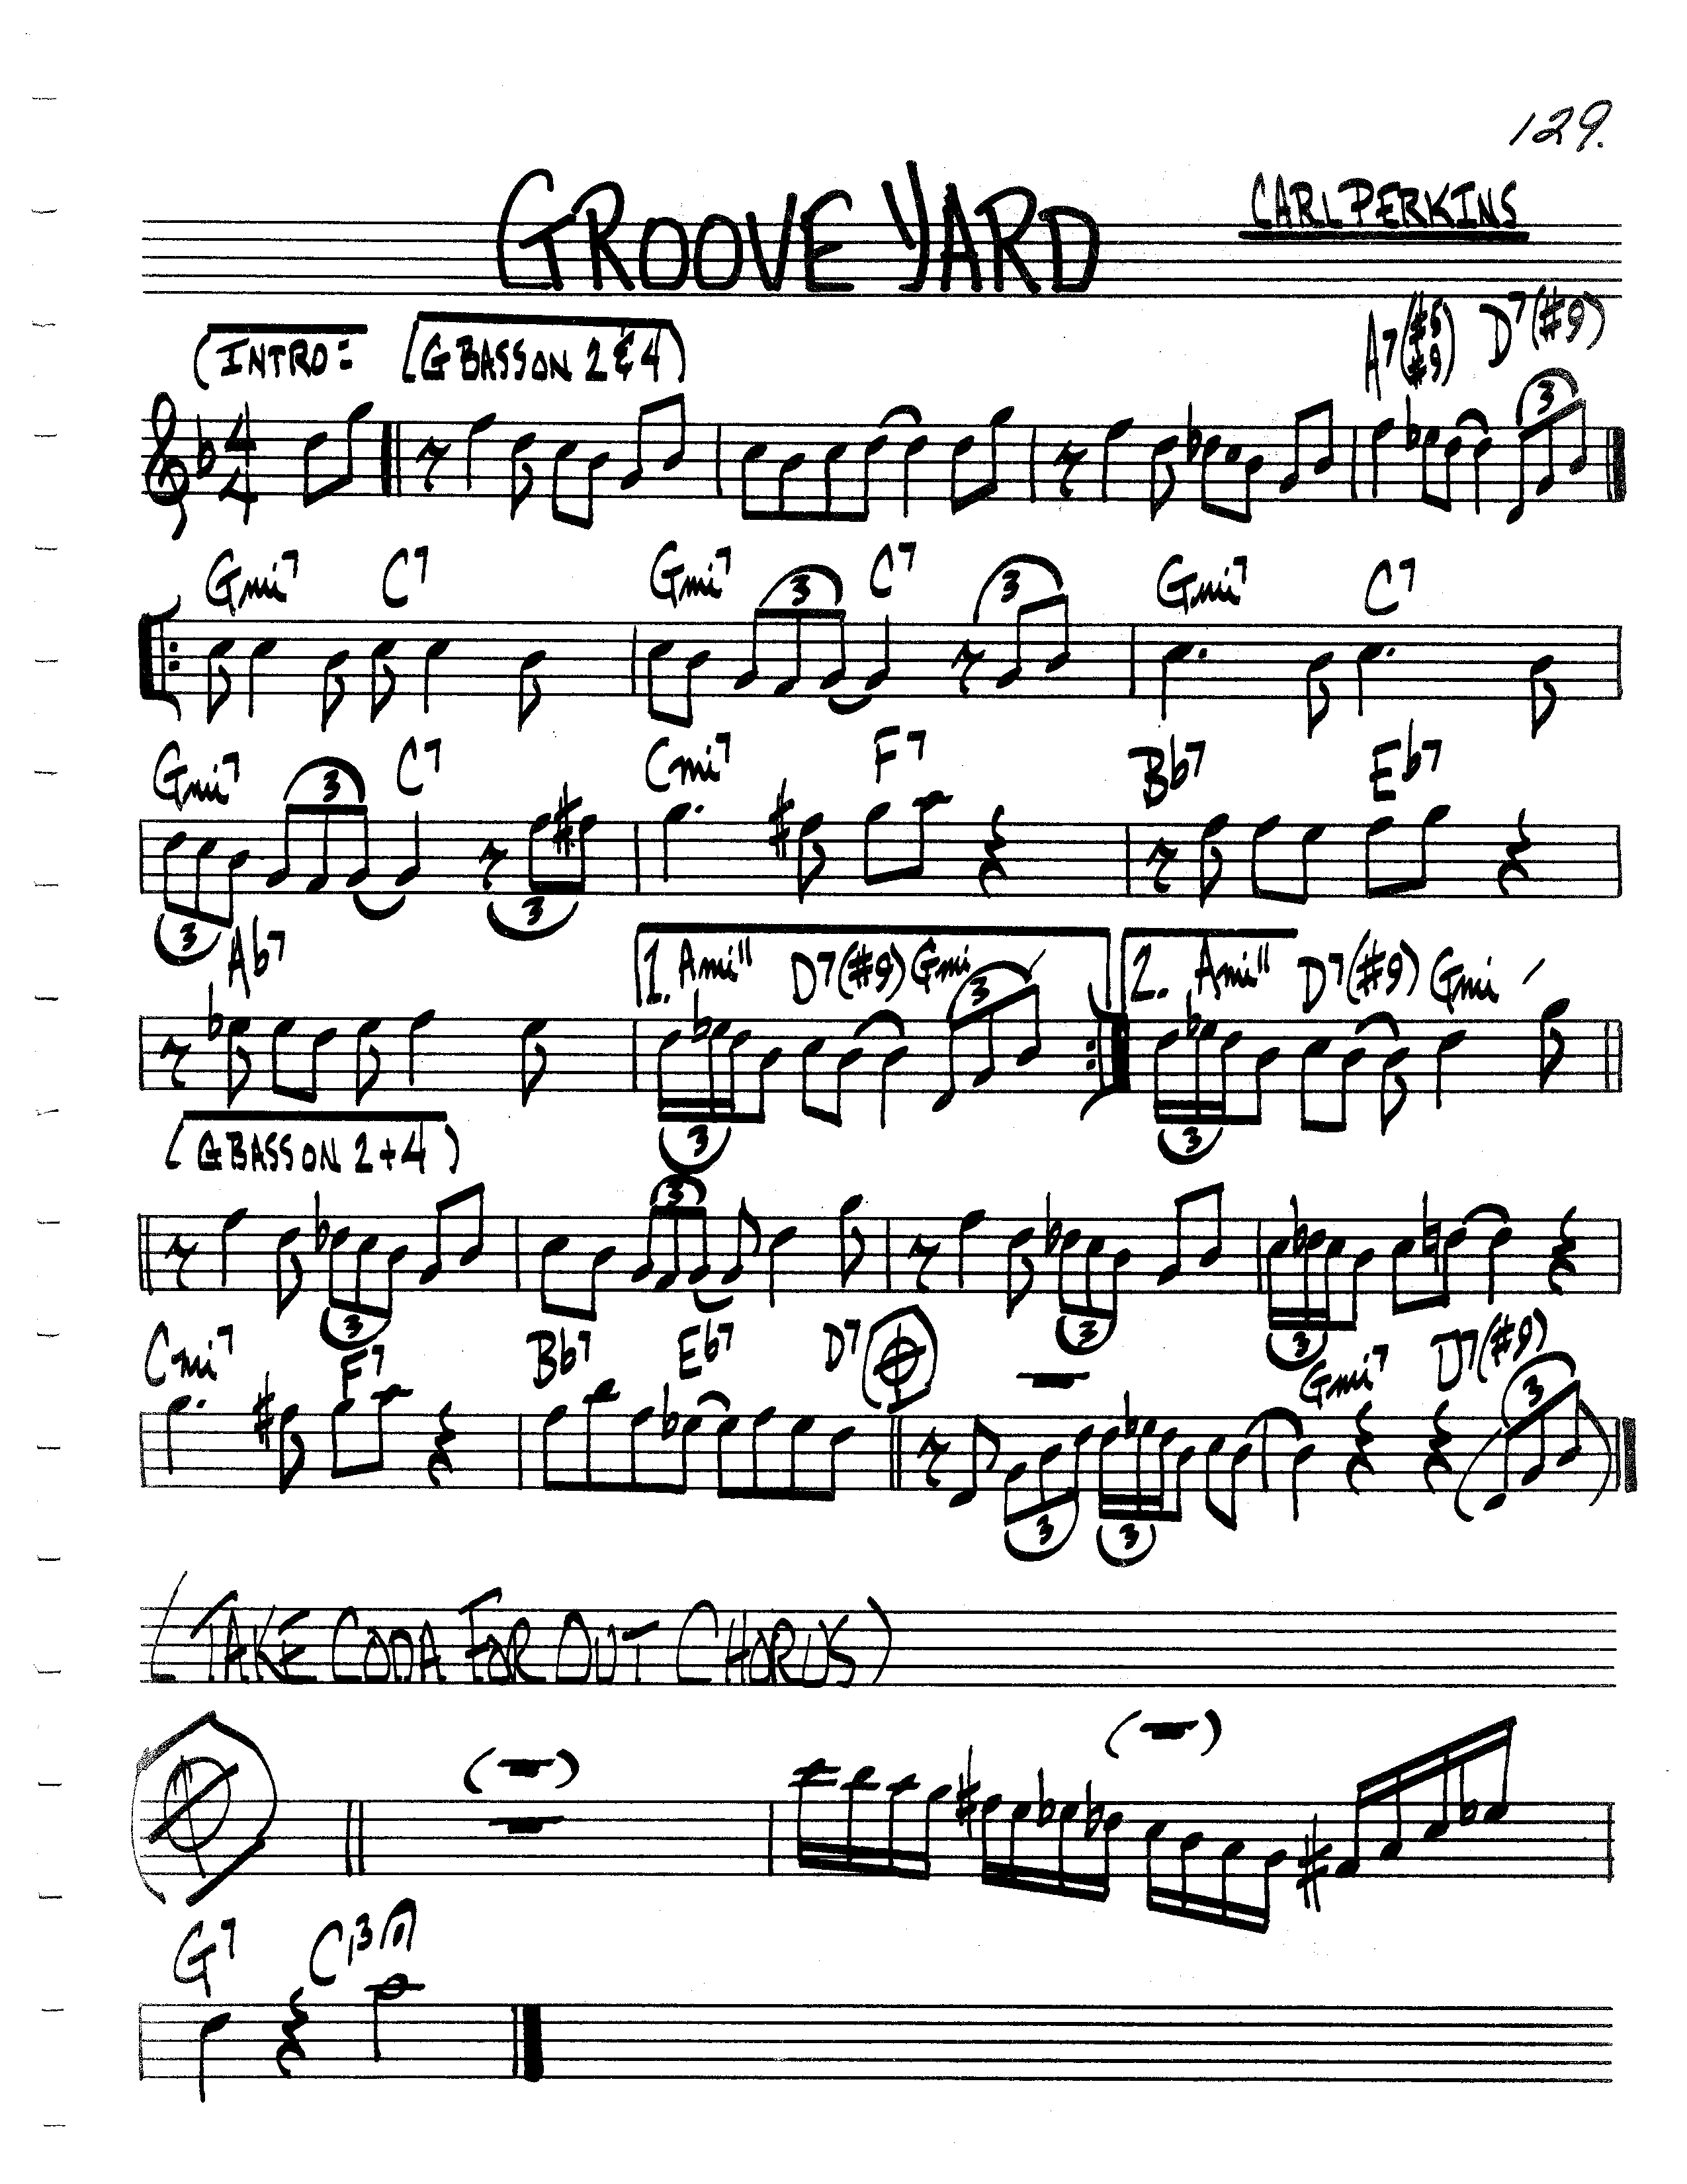 129.
GROOVE YARD
CARL PERKINS
(INTRO: (G BASS ON 2 & 4) A7(#5 #9) D7(#9)
4 4 3
Gmi7 C7 Gmi7 3 C7 3 Gmi7 C7
Gmi7 3 C7 Cmi7 F7 Bb7 Eb7
3 3
Ab7 1. Ami11 D7(#9) Gmi 3 2. Ami11 D7(#9) Gmi
3 3
(G BASS ON 2 + 4)
3
3 3 3
Cmi7 F7 Bb7 Eb7 D7 Gmi7 D7(#9)
3
3 3
(TAKE CODA FOR OUT CHORUS)
G7 C13